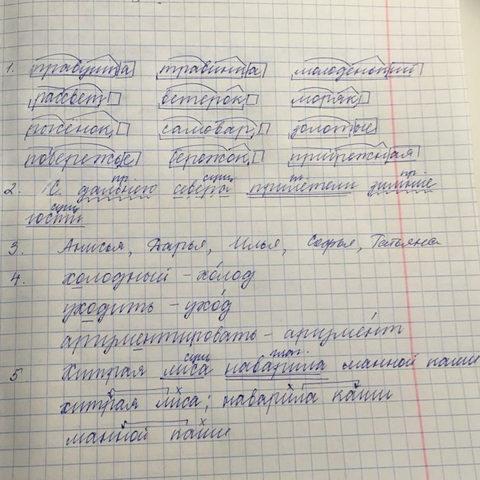 1. травушка травинка молоденький
рассвет ветерок моряк
самовар золотые
побережье бережок прибрежная
2. С дальнего севера прилетели зимние
гости
3. Анисья, Дарья, Илья, Софья, Татьяна
4. холодный – холод
уходить – уход
аргументировать – аргумент
5. Хитрая лиса наварила манной каши
хитрая лиса; наварила каши
манной каши